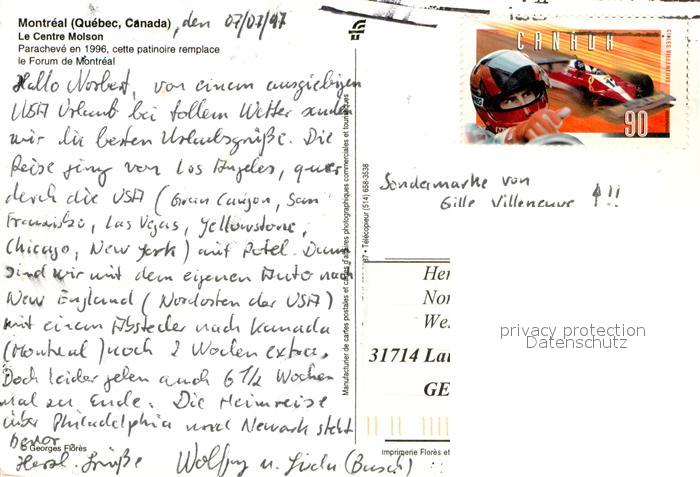 Montréal (Québec, Canada), den 07/07/97
Le Centre Molson
Parachevé en 1996, cette patinoire remplace
le Forum de Montréal
Hallo Norbert, von einem ausgiebigen
USA Urlaub bei tollem Wetter senden
wir die besten Urlaubsgrüße. Die
Reise ging von Los Angeles, quer
durch die USA (Gran Canyon, San
Franzisko, Las Vegas, Yellowstone,
Chicago, New York) mit Dann
sind wir mit dem eigenen Auto nach
New England (Nordosten der USA)
mit einem Abstecher nach Kanada
(Montreal) noch 2 Wochen extra.
Doch leider gehen auch 6 1/2 Wochen
mal zu Ende. Die Heimreise
über Philadelphia und Newark steht
bevor.
© Georges Florès
Herzl. Grüße Wolfg. u. (Busch)
Manufacturier de cartes postales et cartes d'affaires photographiques commerciales et touristiques
• Télécopieur (514) 658-3538
CANADA
GILLES VILLENEUVE
90
Sondermarke von
Gille Villeneuve ↑!!
Her
Nor
We
31714 Lau
GE
Imprimerie Florès et
privacy protection
Datenschutz